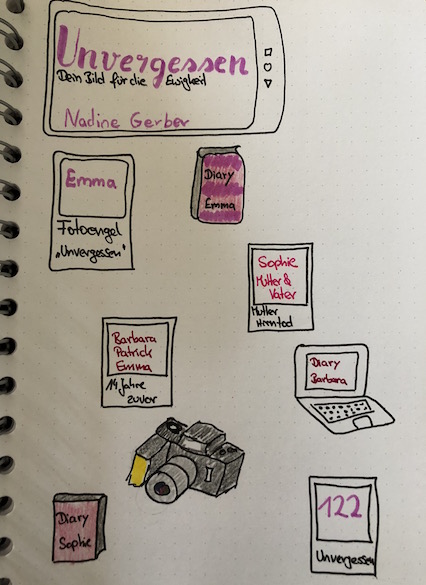 Unvergessen
Dein Bild für die Ewigkeit
Nadine Gerber
Emma
Fotoengel
„Unvergessen"
Diary
Emma
Sophie
Mutter &
Vater
Mutter
Hirntod
Barbara
Patrick
Emma
14 Jahre
zuvor
Diary
Barbara
Diary
Sophie
122
Unvergessen